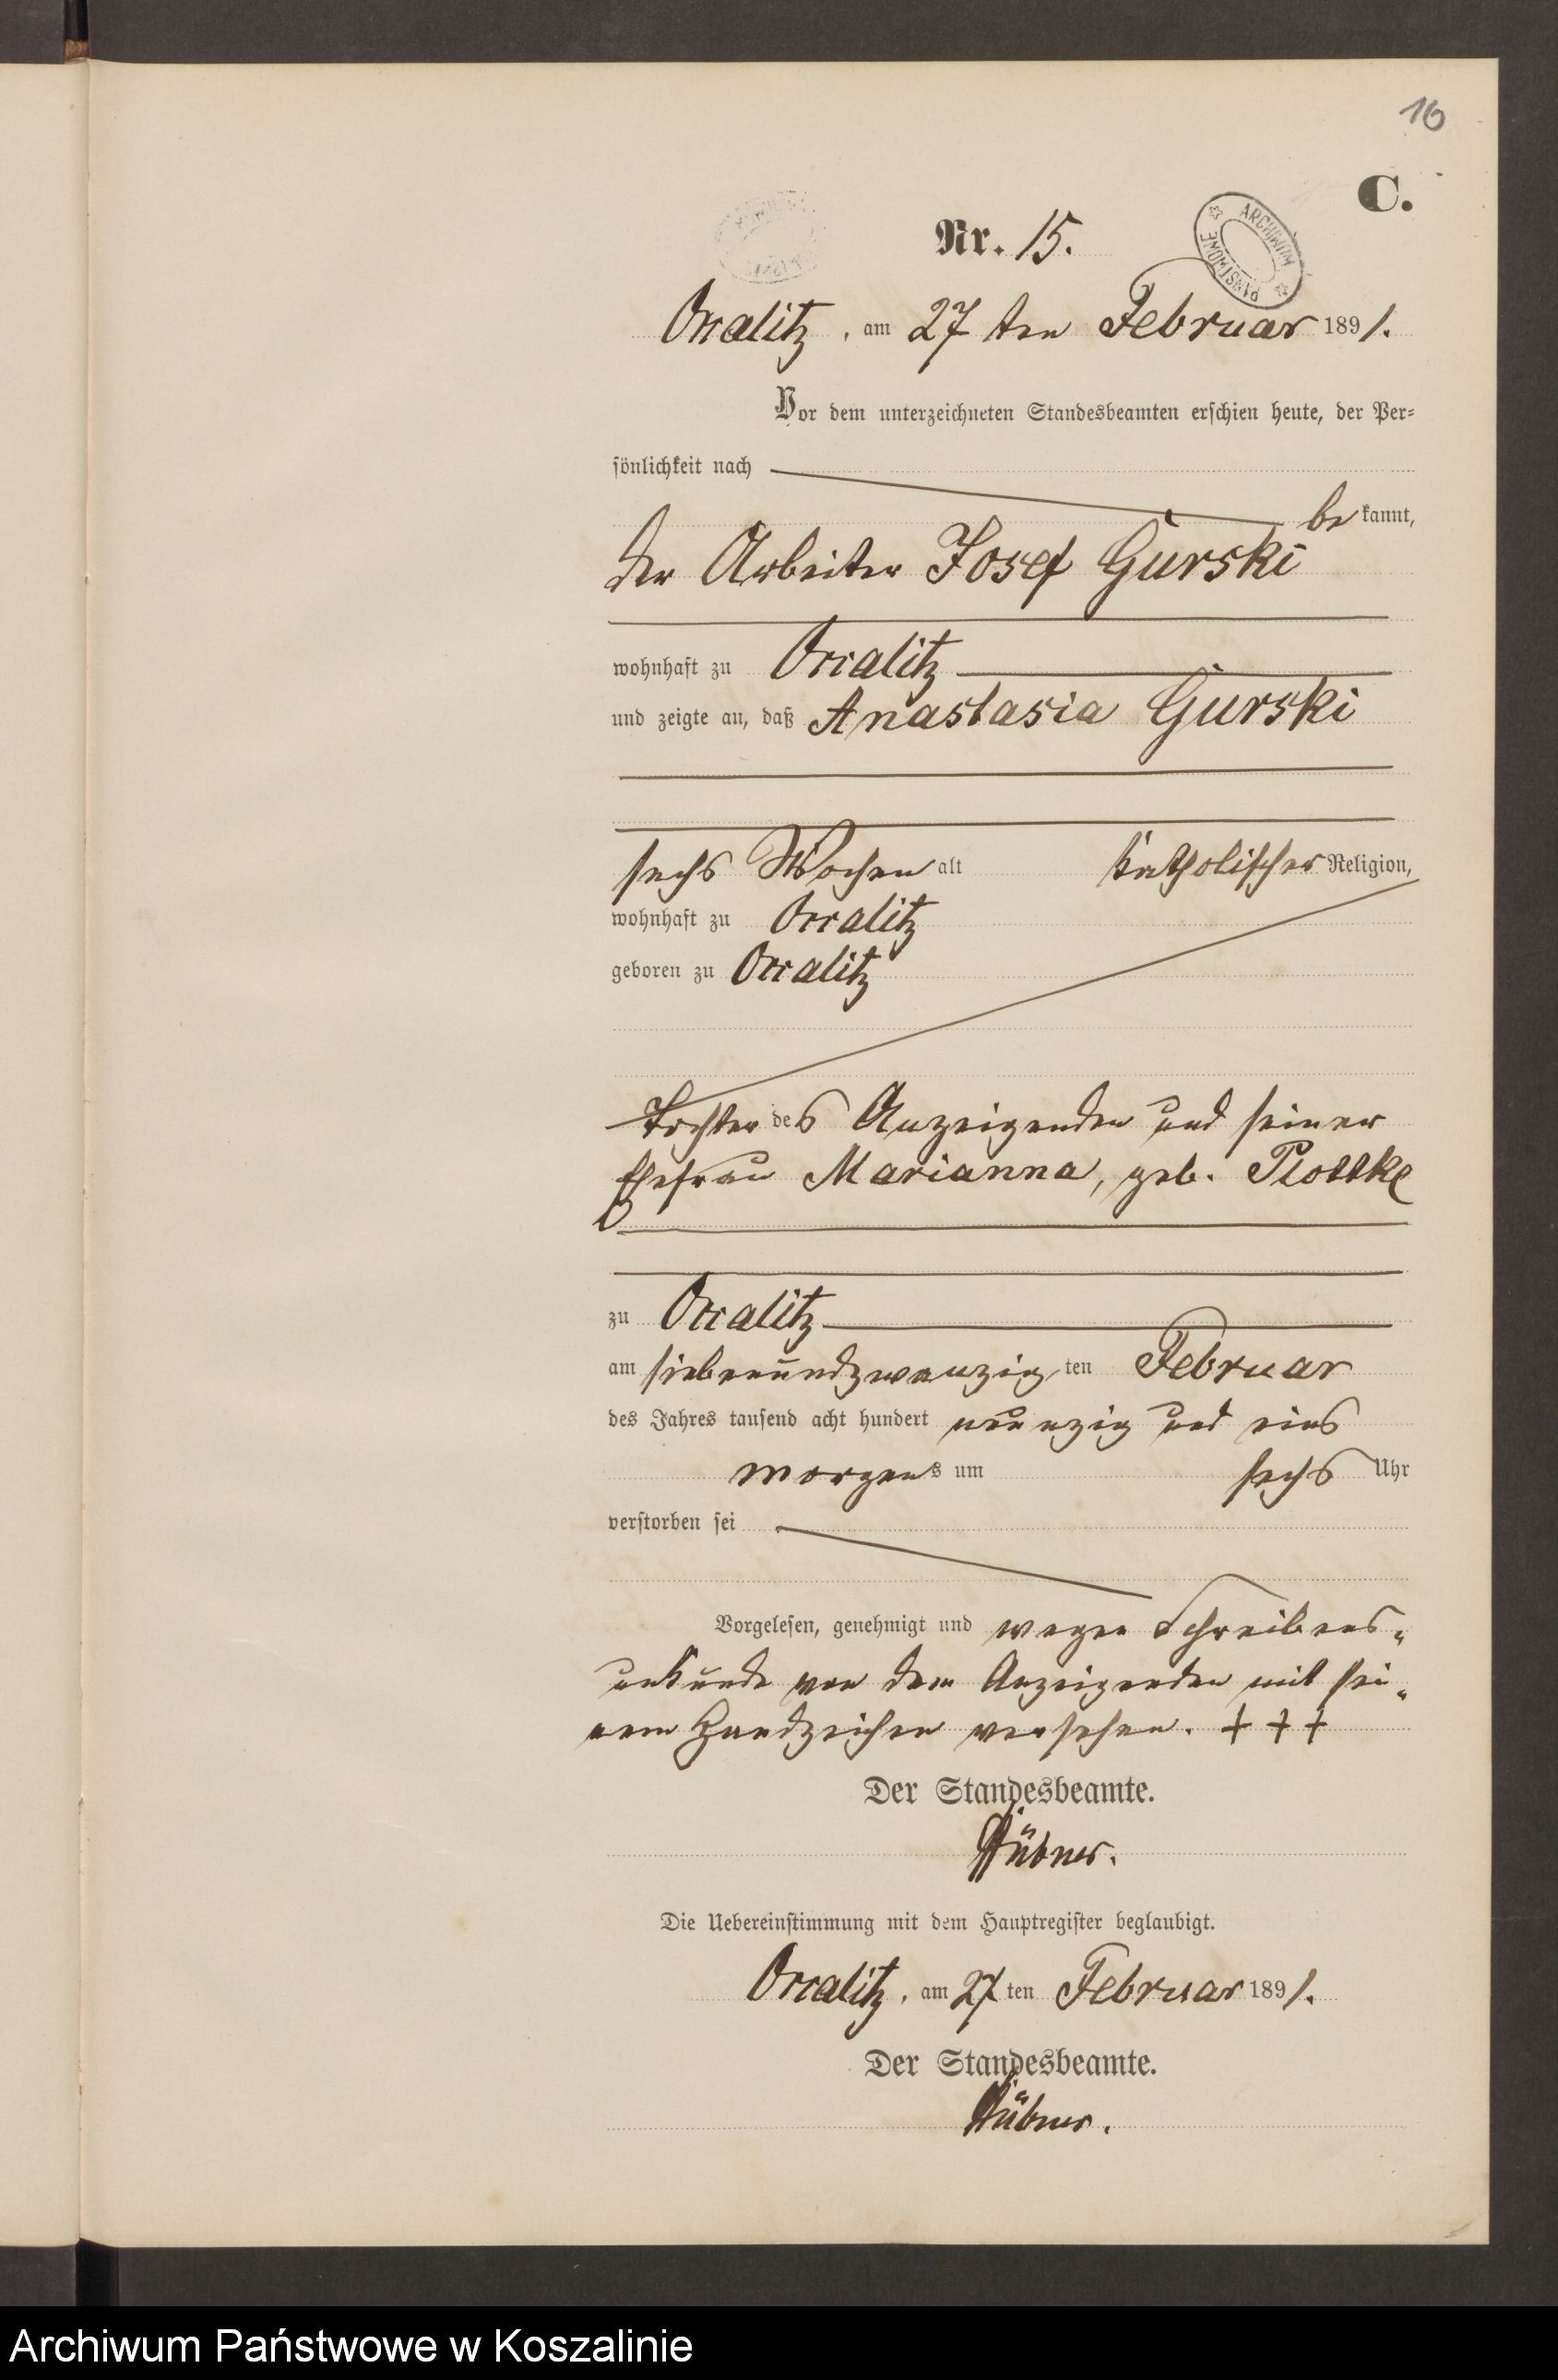 16
C.
ARCHIWUM PAŃSTWOWE
Nr. 15.
Ossalitz, am 27 ten Februar 1891.
Vor dem unterzeichneten Standesbeamten erschien heute, der Per-
sönlichkeit nach
be kannt,
der Arbeiter Josef Gurski
wohnhaft zu Ossalitz
und zeigte an, daß Anastasia Gurski
sechs Wochen alt katholischer Religion,
wohnhaft zu Ossalitz
geboren zu Ossalitz
Tochter des Anzeigenden und seiner
Ehefrau Marianna, geb.
zu Ossalitz
am siebenundzwanzig ten Februar
des Jahres tausend acht hundert neunzig und eins
morgens um sechs Uhr
verstorben sei
Vorgelesen, genehmigt und wegen Schreibens-
unkunde von dem Anzeigenden mit sei-
nem Handzeichen versehen. + + +
Der Standesbeamte.
Hübner.
Die Uebereinstimmung mit dem Hauptregister beglaubigt.
Ossalitz, am 27 ten Februar 1891.
Der Standesbeamte.
Hübner.
Archiwum Państwowe w Koszalinie